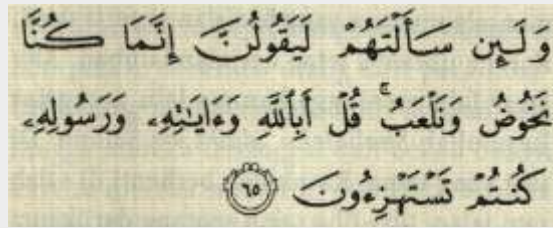 وَلَئِن سَأَلْتَهُمْ لَيَقُولُنَّ إِنَّمَا كُنَّا
نَخُوضُ وَنَلْعَبُ ۚ قُلْ أَبِٱللَّهِ وَءَايَـٰتِهِۦ وَرَسُولِهِۦ
كُنتُمْ تَسْتَهْزِءُونَ ٦٥